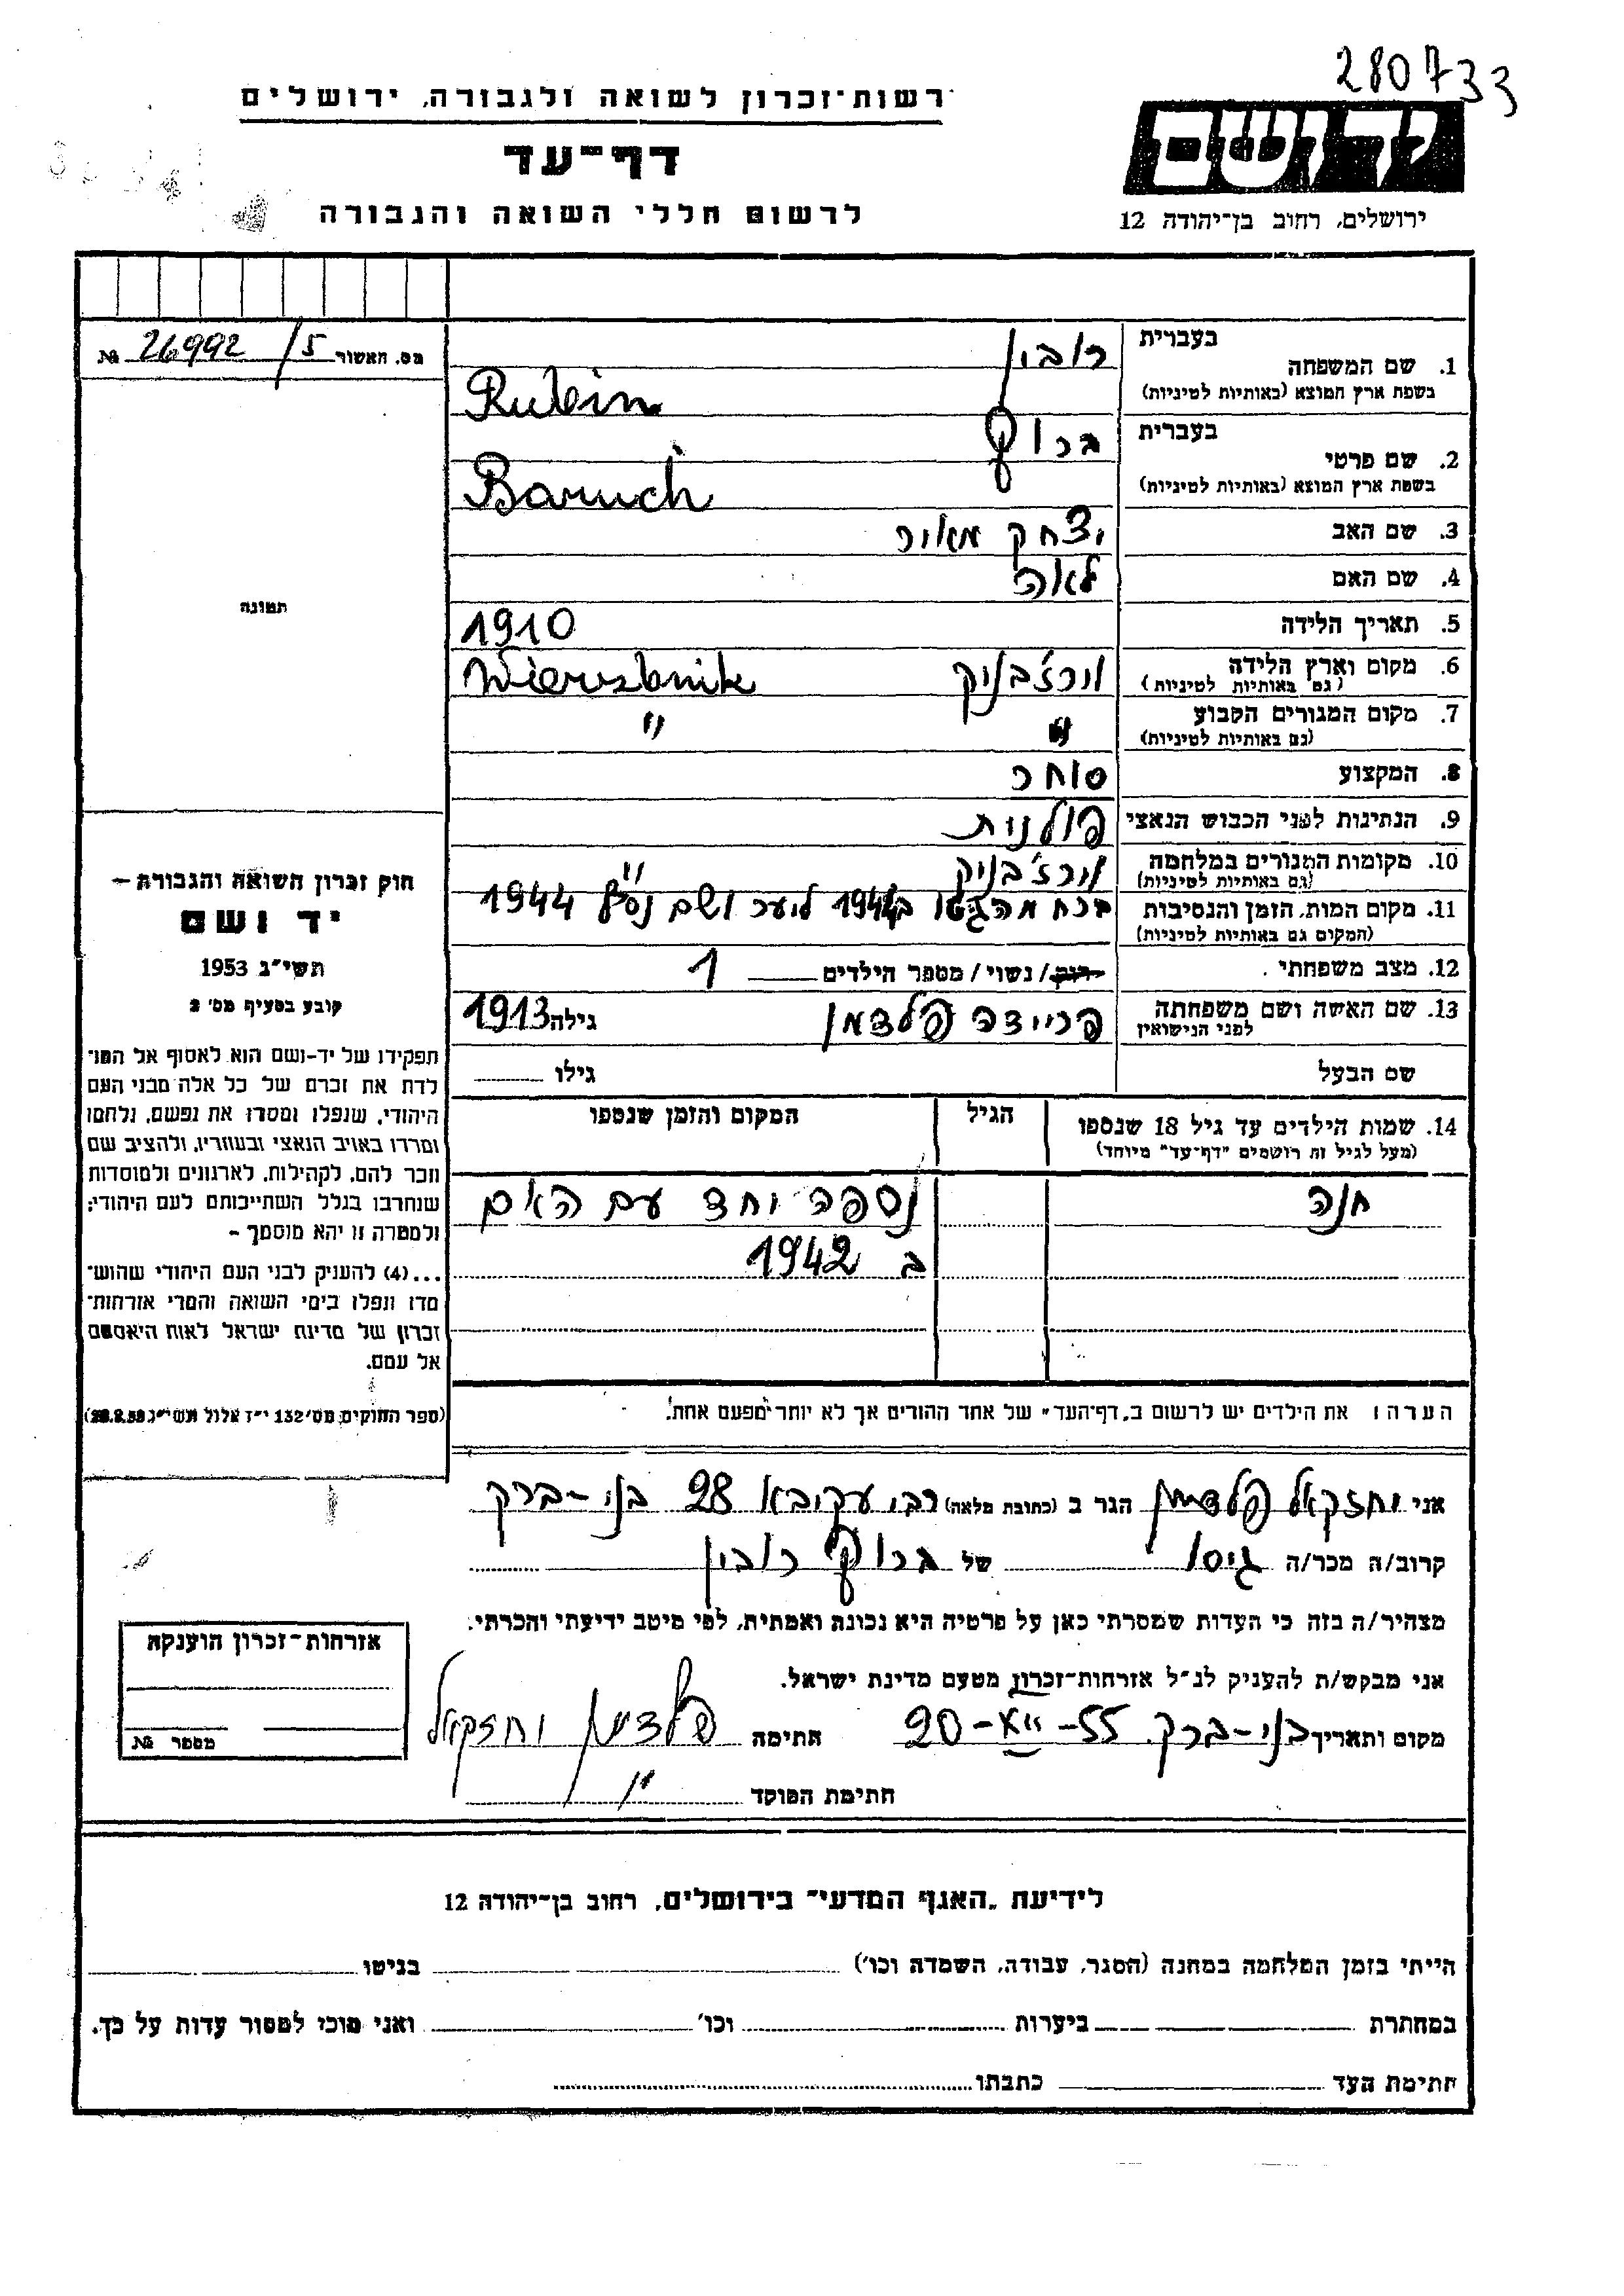 280733
רשות־זכרון לשואה ולגבורה, ירושלים
דף־עד
לרשום חללי השואה והגבורה
יד ושם
ירושלים, רחוב בן־יהודה 12
מס. האשור 26992/5 №
תמונה
חוק זכרון השואה והגבורה –
יד ושם
תשי״ג 1953
קובע בסעיף מס׳ 2
תפקידו של יד-ושם הוא לאסוף אל המו־
לדת את זכרם של כל אלה מבני העם
היהודי, שנפלו ומסרו את נפשם, נלחמו
ומרדו באויב הנאצי ובעוזריו, ולהציב שם
וזכר להם, לקהילות, לארגונים ולמוסדות
שנחרבו בגלל השתייכותם לעם היהודי;
ולמטרה זו יהא מוסמך –
...(4) להעניק לבני העם היהודי שהוש־
מדו ונפלו בימי השואה והמרי אזרחות־
זכרון של מדינת ישראל לאות היאספם
אל עמם.
(ספר החוקים מס׳ 132 י״ז אלול תשי״ג 28.8.53)
בעברית רובין
1. שם המשפחה
בשפת ארץ המוצא (באותיות לטיניות) Rubin
בעברית ברוך
2. שם פרטי
בשפת ארץ המוצא (באותיות לטיניות) Baruch
3. שם האב יצחק מאיר
4. שם האם לאה
5. תאריך הלידה 1910
6. מקום וארץ הלידה ורז׳בניק Wierzbnik
(גם באותיות לטיניות)
7. מקום המגורים הקבוע " "
(גם באותיות לטיניות)
8. המקצוע סוחר
9. הנתינות לפני הכבוש הנאצי פולנית
10. מקומות המגורים במלחמה ורז׳בניק "
(גם באותיות לטיניות)
11. מקום המות, הזמן והנסיבות ברח מהגטו ב1942 ליער ושם נפל 1944
(המקום גם באותיות לטיניות)
12. מצב משפחתי. רוק/ נשוי/ מספר הילדים 1
13. שם האשה ושם משפחתה פריידה פלדמן גילה 1913
לפני הנישואין
שם הבעל גילו
14. שמות הילדים עד גיל 18 שנספו הגיל המקום והזמן שנספו
(מעל לגיל זה רושמים "דף־עד" מיוחד)
חנה נספה יחד עם האם
ב 1942
הערה: את הילדים יש לרשום ב"דף־העד" של אחד ההורים אך לא יותר מפעם אחת.
אני יחזקאל פלדמן הגר ב (כתובת מלאה) רבי עקיבא 28 בני-ברק
קרוב/ה מכר/ה גיסו של ברוך רובין
מצהיר/ה בזה כי העדות שמסרתי כאן על פרטיה היא נכונה ואמתית, לפי מיטב ידיעתי והכרתי.
אני מבקש/ת להעניק לנ״ל אזרחות־זכרון מטעם מדינת ישראל.
מקום ותאריך בני-ברק. 20-XII-55 חתימה פלדמן יחזקאל
חתימת הפוקד "
אזרחות־זכרון הוענקה
מספר №
לידיעת "האגף המדעי" בירושלים, רחוב בן־יהודה 12
הייתי בזמן המלחמה במחנה (הסגר, עבודה, השמדה וכו׳) בגיטו
במחתרת ביערות וכו׳ ואני מוכן למסור עדות על כך.
חתימת העד כתבתו